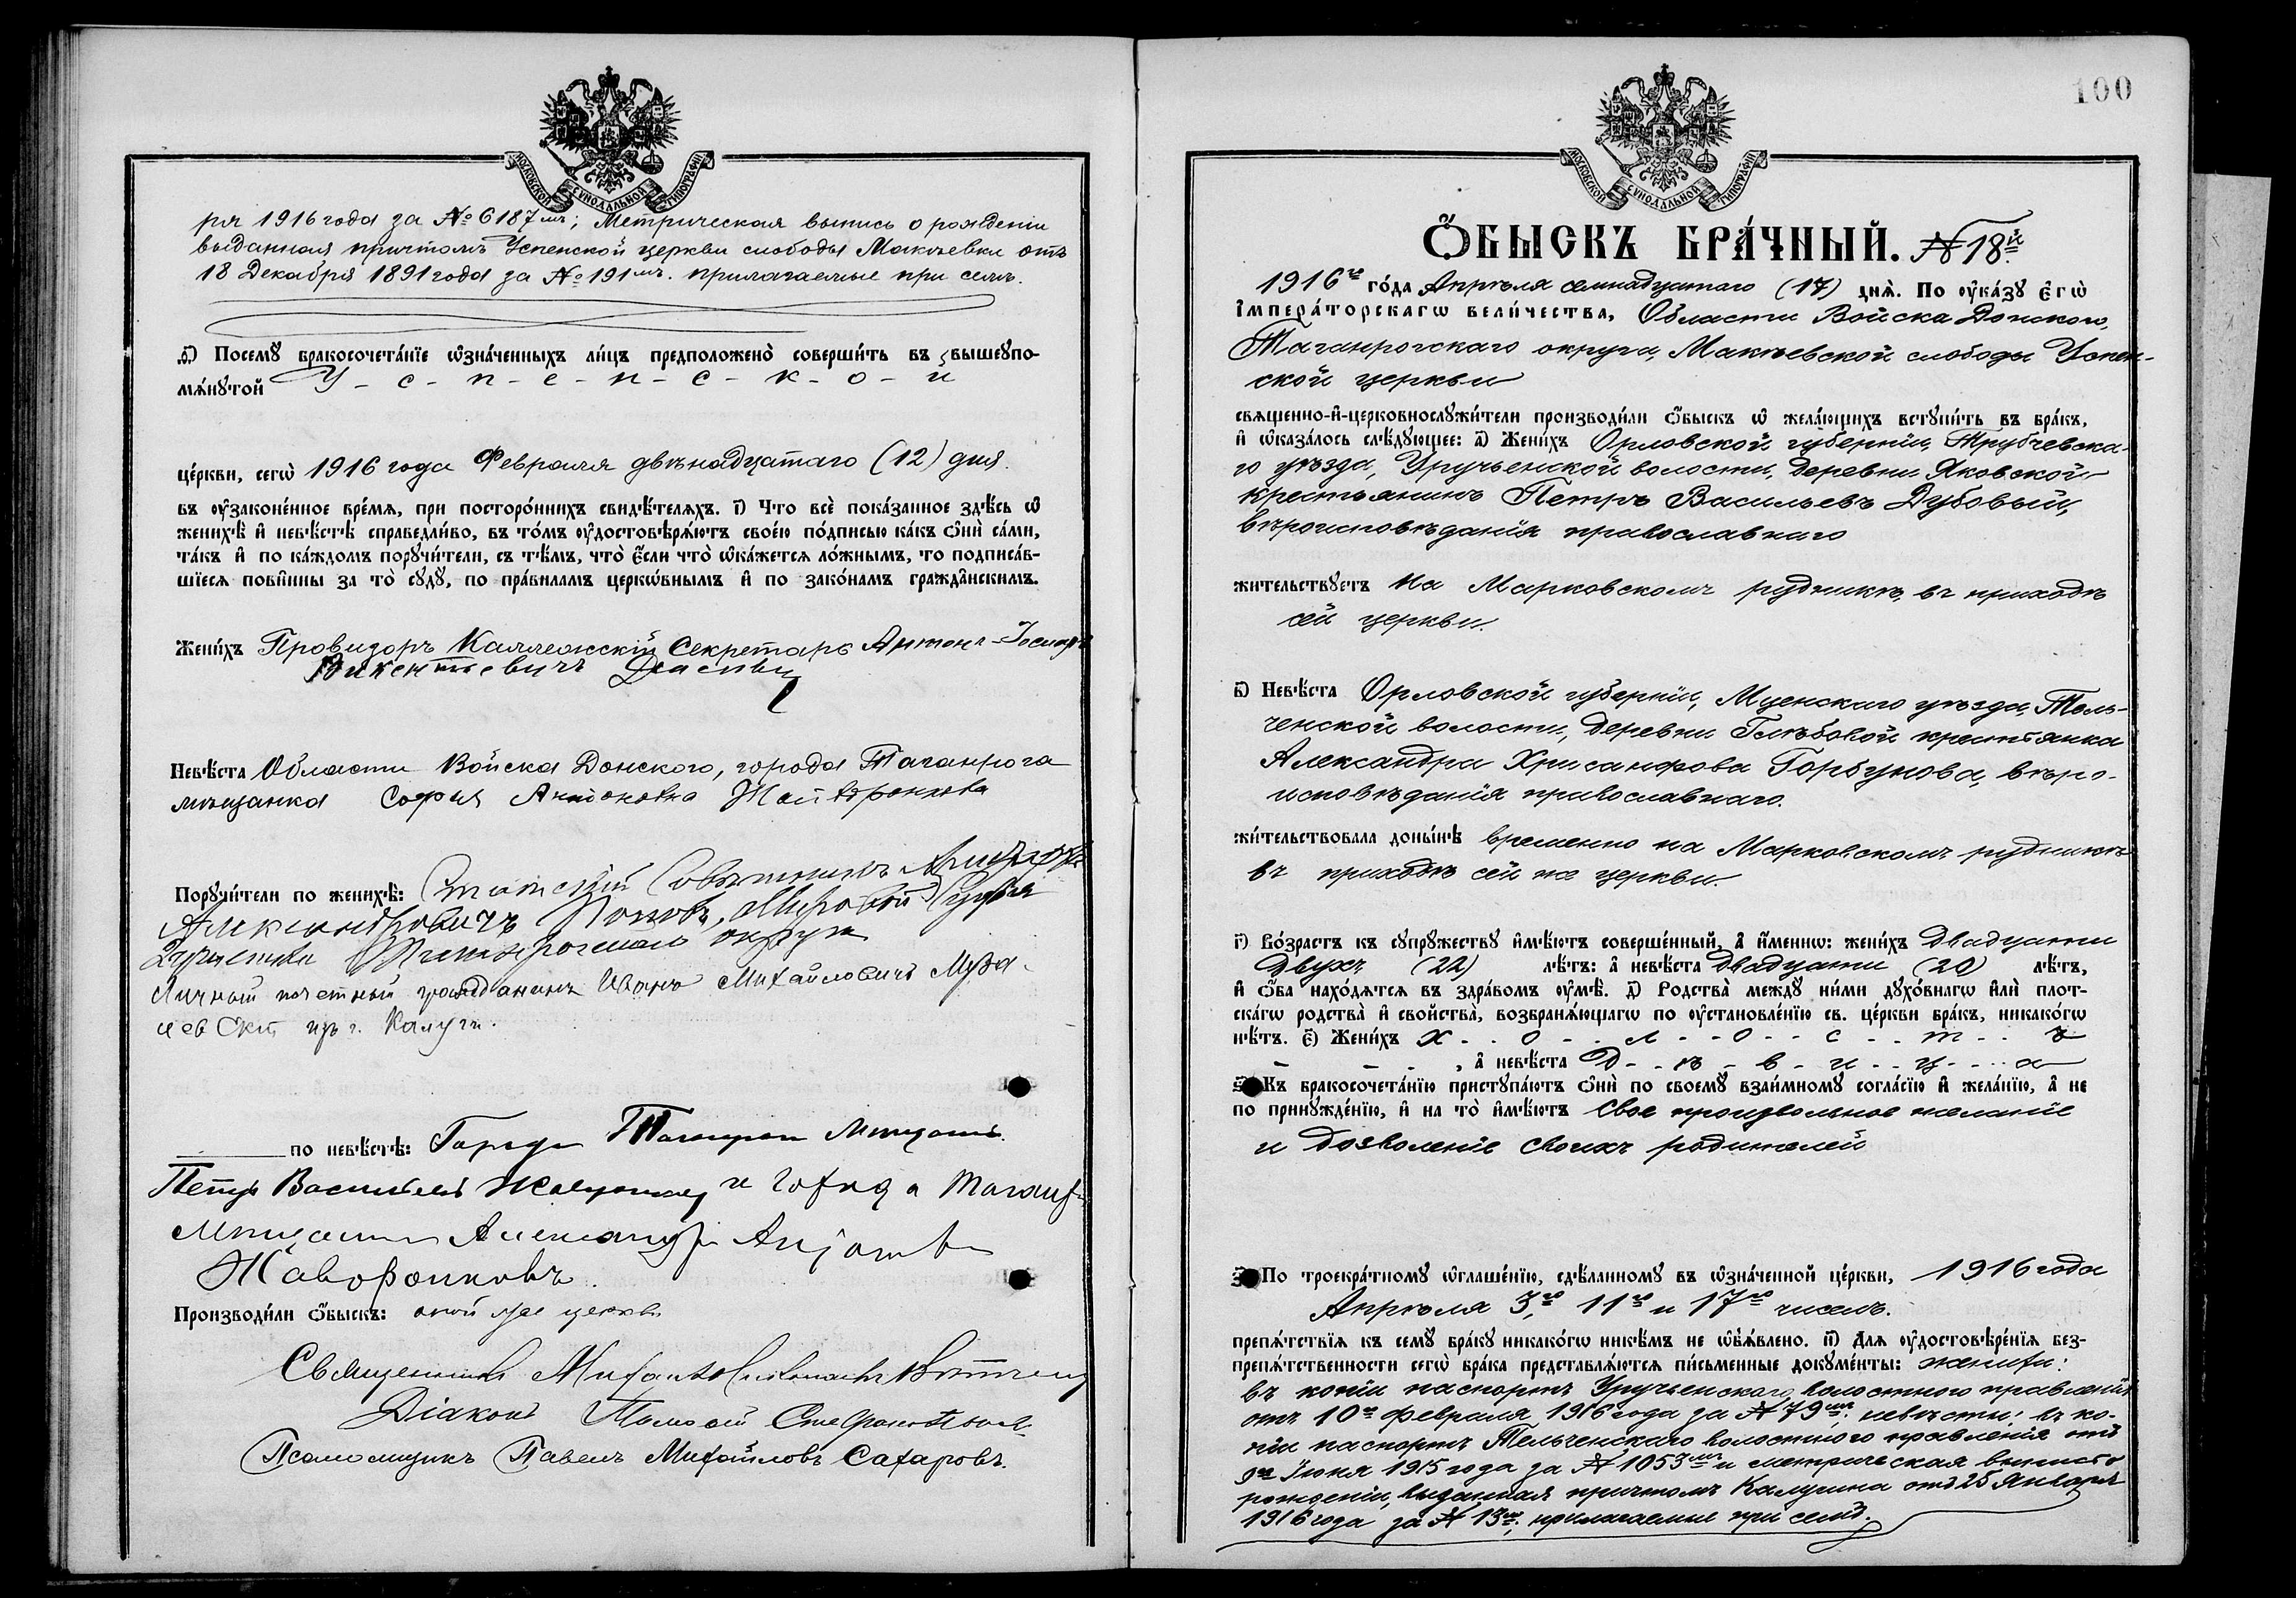 МОСКОВСКОЙ СѴНОДАЛЬНОЙ ТИПОГРАФІИ
ря 1916 года за № 6187мъ; Метрическая выпись о рожденіи
выданная причтомъ Успенской церкви слободы Макѣевки отъ
18 Декабря 1891 года за № 191мъ. прилагаемые при семъ.
Посемꙋ бракосочета́нїе ѡ҆зна́ченныхъ ли́цъ предположено̀ соверши́ть въ вышеꙋпо-
мѧ́нꙋтой У - с - п - е - н - с - к - о - й
це́ркви, сегѡ̀ 1916 года Февраля двѣнадцатаго (12) дня.
въ ᲂу҆зако́ненное вре́мѧ, при посторо́ннихъ свидѣ́телѧхъ. і҃) Что всѐ пока́занное здѣ́сь ѡ҆
женихѣ̀ и҆ невѣ́стѣ справедли́во, въ то́мъ ᲂу҆достовѣрѧ́ютъ свое́ю по́дписью ка́къ ѻ҆нѝ са́ми,
та́къ и҆ по ка́ждомъ порꙋчи́тели, съ тѣ́мъ, что̀ є҆́сли что̀ ѡ҆ка́жетсѧ ло́жнымъ, то подписа́в-
шїесѧ пови́нны за то̀ сꙋдꙋ̀, по пра́виламъ церкѡ́внымъ и҆ по зако́намъ гражда́нскимъ.
Жени́хъ Провизоръ Коллежскій Секретарь Антонъ-Іосифъ
Викентьевичъ
Невѣ́ста Области Войска Донского, города Таганрога
мѣщанка Софья Антоновна Жаворонкова
Порꙋчи́тели по женихѣ̀: Статскій Совѣтникъ
Александровичъ Поповъ, Мировой Судья
Таганрогскаго округа
Личный почетный гражданинъ Иванъ Михайловичъ
изъ г. Калуги.
по невѣ́стѣ: Города Таганрога Мѣщанинъ
Петръ Васильевъ и города Таганр.
Мѣщанинъ Александръ
Жаворонковъ.
Производи́ли ѻ҆́быскъ: оной же церкви
Священникъ Михаилъ
Діаконъ
Псаломщикъ Павелъ Михайловъ Сахаровъ.
100
МОСКОВСКОЙ СѴНОДАЛЬНОЙ ТИПОГРАФІИ
Ѻ҆́БЫСКЪ БРА́ЧНЫЙ. № 18й.
1916го го́да Апрѣля семнадцатаго (17) днѧ̀. По ᲂу҆ка́зꙋ Є҆гѡ̀
І҆мпера́торскагѡ вели́чества, Области Войска Донского,
Таганрогскаго округа, Макѣевской слободы Успен-
ской церкви
свѧщенно-и҆-церковнослꙋжи́тели производи́ли ѻ҆́быскъ ѡ҆ жела́ющихъ встꙋпи́ть въ бра́къ,
и҆ ѡ҆каза́лось слѣ́дꙋющее: а҃) Жени́хъ Орловской губерніи, Трубчевска-
го уѣзда, Уручьенской волости, деревни Яковской
крестьянинъ Петръ Васильевъ Дубовый,
вѣроисповѣданія православнаго
жи́тельствꙋетъ на Марковскомъ рудникѣ, въ приходѣ
сей церкви.
в҃) Невѣ́ста Орловской губерніи, Мценскаго уѣзда, Тель-
ченской волости, деревни Глѣбовой крестьянка
Александра Хрисанфова Горбунова, вѣро-
исповѣданія православнаго.
жи́тельствовала доны́нѣ временно на Марковскомъ рудникѣ
въ приходѣ сей же церкви.
г҃) Во́зрастъ къ сꙋпрꙋ́жествꙋ и҆мѣ́ютъ соверше́нный, а҆ и҆́меннѡ: жени́хъ двадцати
двухъ (22) лѣ́тъ: а҆ невѣ́ста двадцати (20) лѣ́тъ,
и҆ ѻ҆́ба нахо́дѧтсѧ въ здра́вомъ ᲂу҆мѣ̀. д҃) Родства̀ междꙋ ни́ми дꙋхо́внагѡ и҆лѝ плот-
ска́гѡ родства̀ и҆ свойства̀, возбранѧ́ющагѡ по ᲂу҆становле́нїю св. це́ркви бра́къ, никако́гѡ
нѣ́тъ. є҃) Жени́хъ х - о - л - о - с - т - ъ
, а҆ невѣ́ста д - ѣ - в - и - ц - а
Къ бракосочета́нїю пристꙋпа́ютъ ѻ҆нѝ по своемꙋ̀ взаи́мномꙋ согла́сїю и҆ жела́нїю, а҆ не
по принꙋжде́нїю, и҆ на то̀ и҆мѣ́ютъ свое произвольное желаніе
и дозволеніе своихъ родителей
По троекра́тномꙋ ѡ҆глаше́нїю, сдѣ́ланномꙋ въ ѡ҆зна́ченной це́ркви, 1916 года
Апрѣля 3го, 11го и 17го чиселъ.
препѧ́тствїѧ къ семꙋ̀ бра́кꙋ никако́гѡ никѣ́мъ не ѡ҆б̾ѧ́влено. и҃) Длѧ ᲂу҆достовѣре́нїѧ без-
препѧ́тственности сегѡ̀ бра́ка представлѧ́ютсѧ пи́сьменные докꙋме́нты: жениха:
въ копіи паспортъ Уручьенскаго волостного правленія
отъ 10го февраля 1916 года за № 79мъ; невѣсты: въ ко-
піи паспортъ Тельченскаго волостного правленія отъ
9го Іюня 1915 года за № 1053мъ и метрическая выпись о
рожденіи, выданная причтомъ Калугина отъ 25 Января
1916 года за № 13мъ, прилагаемые при семъ.